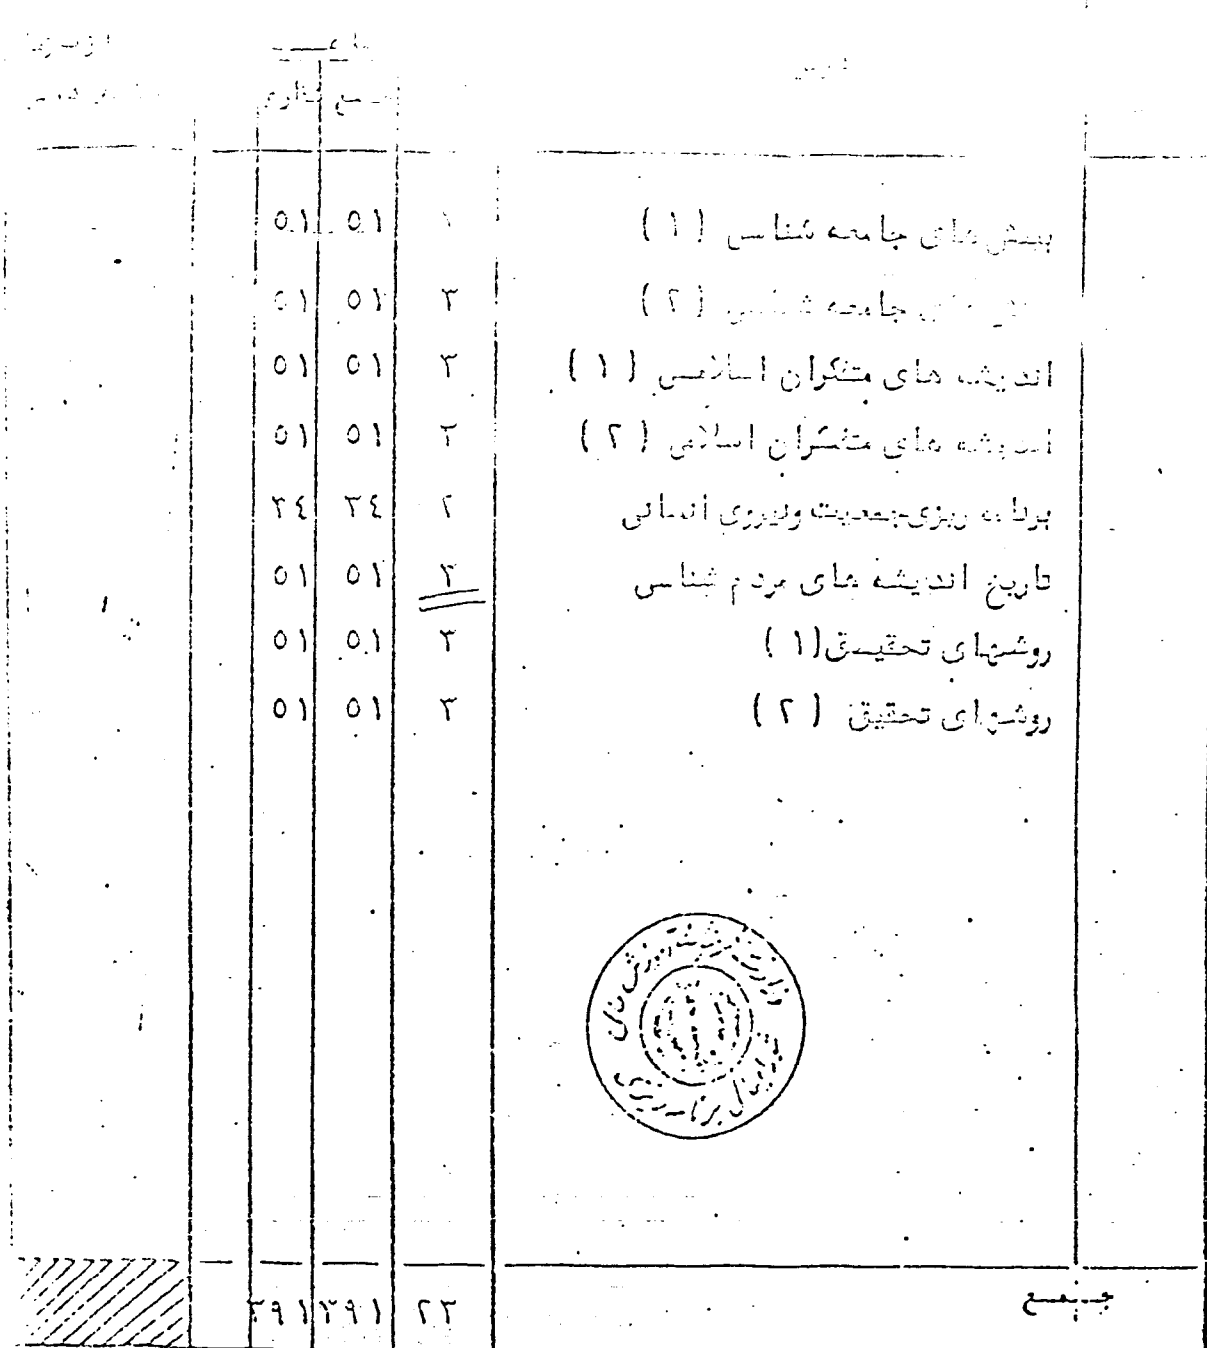 ساعت
جمع نظری
بینش های جامعه شناسی ( ۱ ) ۵۱ ۵۱
جامعه شناسی ( ۲ ) ۳ ۵۱ ۵۱
اندیشه های متفکران اسلامی ( ۱ ) ۳ ۵۱ ۵۱
اندیشه های متفکران اسلامی ( ۲ ) ۳ ۵۱ ۵۱
برنامه ریزی جمعیت ونیروی انسانی ۲ ۳۴ ۳۴
تاریخ اندیشه های مردم شناسی ۳ ۵۱ ۵۱
روشهای تحقیق (۱ ) ۳ ۵۱ ۵۱
روشهای تحقیق ( ۲ ) ۳ ۵۱ ۵۱
شورایعالی برنامه ریزی
جمع ۲۳ ۳۹۱ ۳۹۱